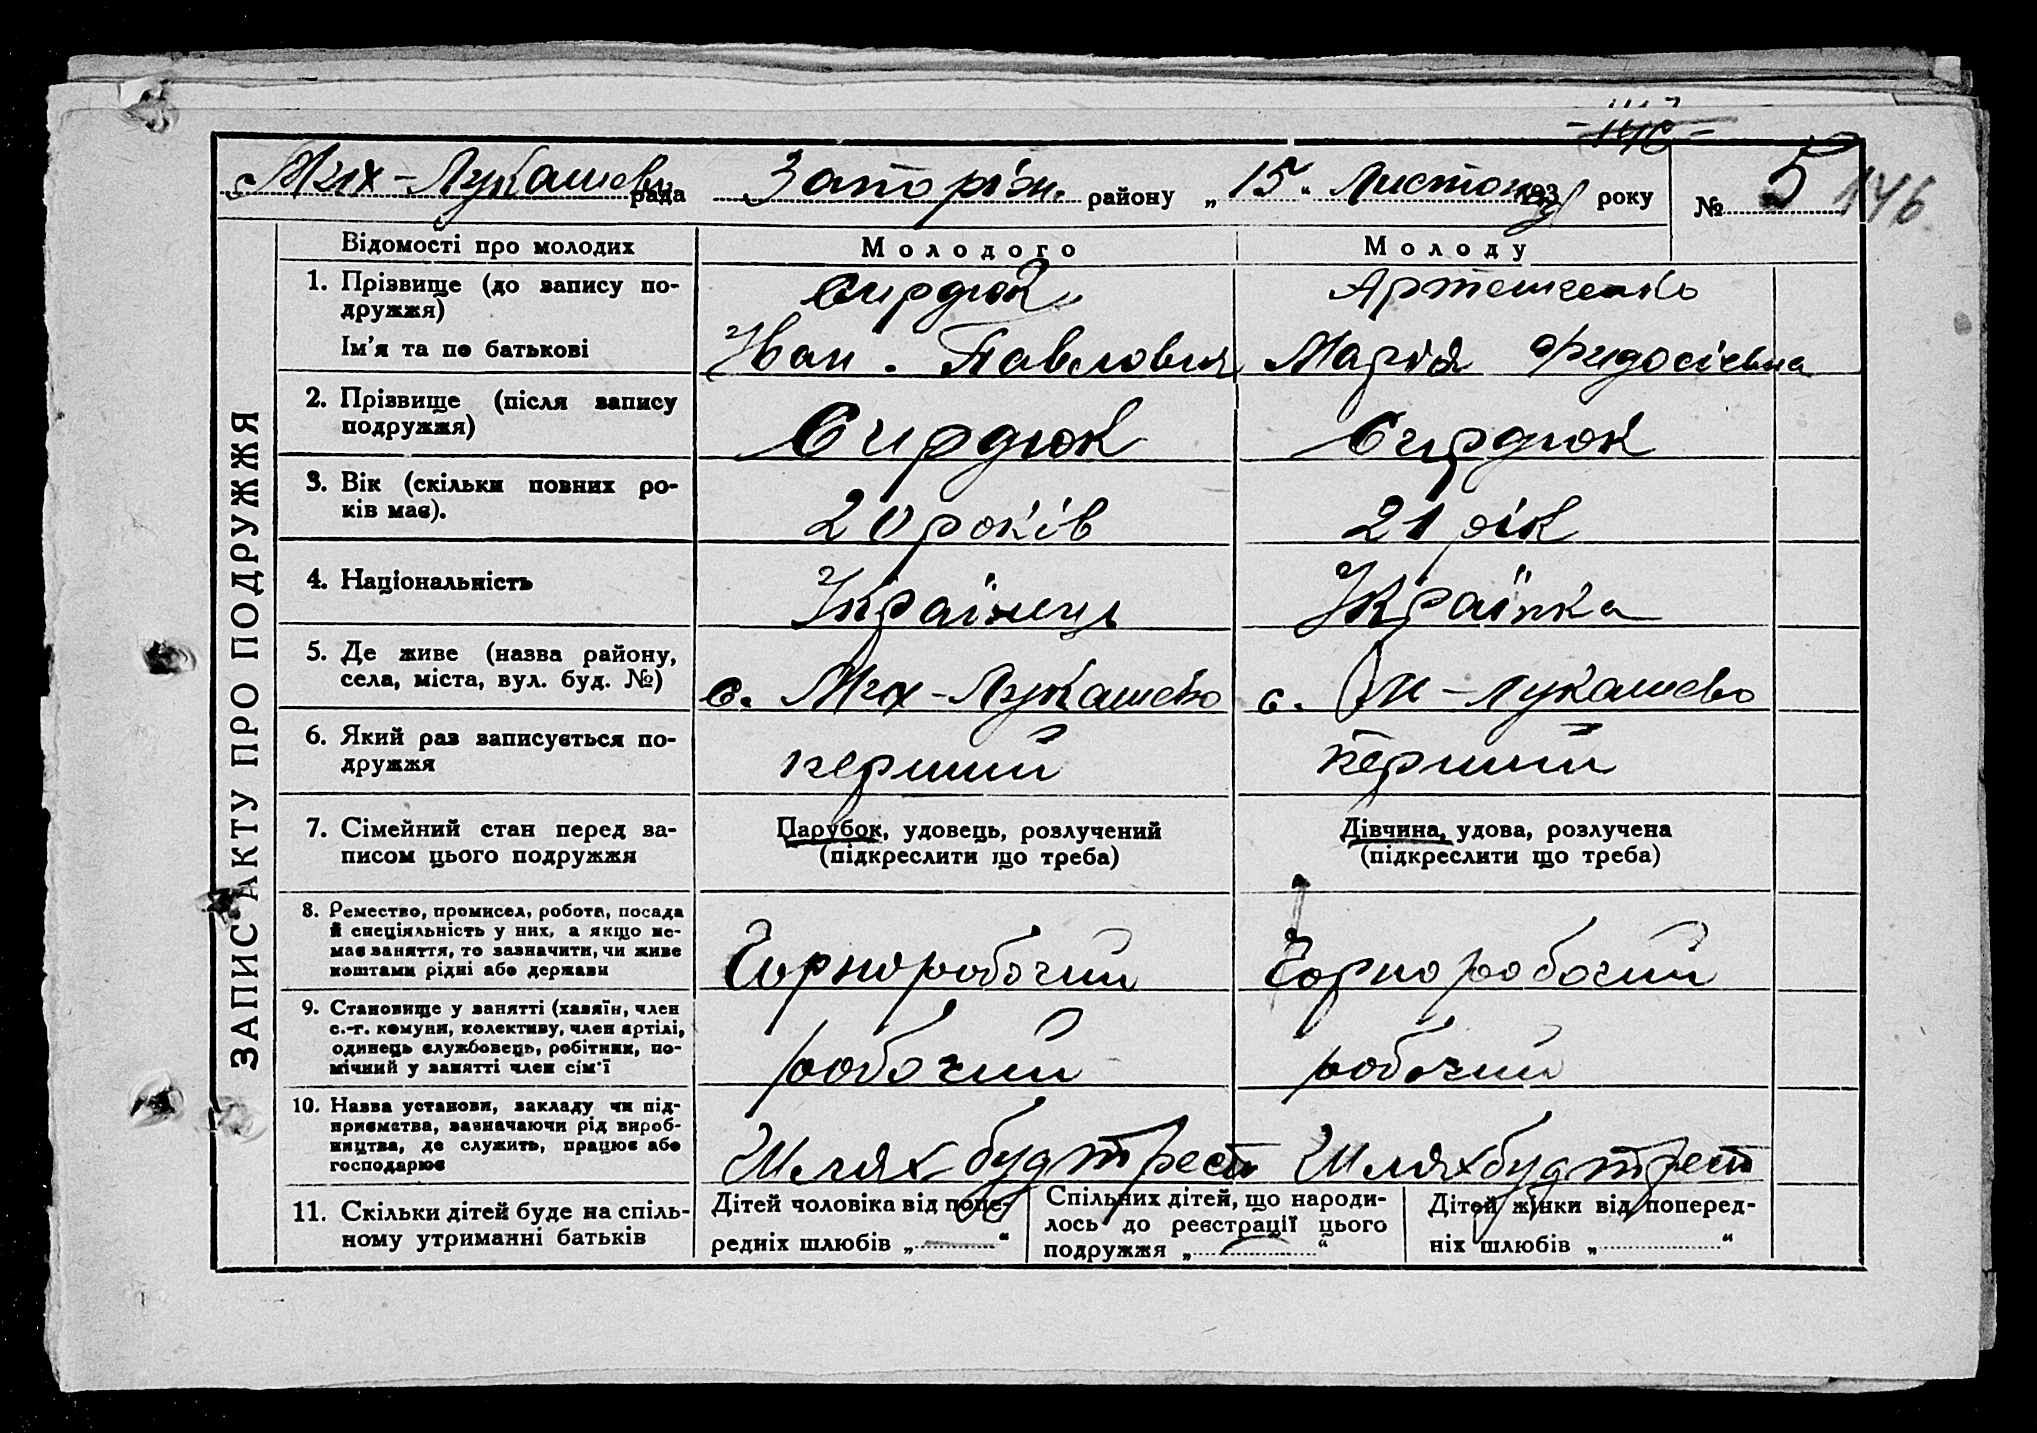 Мих-Лукашевс рада Запоріж. району „15" Листопад 193 року № 5 146
ЗАПИС АКТУ ПРО ПОДРУЖЖЯ
Відомості про молодих Молодого Молоду
1. Прізвище (до запису по-
дружжя) Сирдюк Артеменко
Ім'я та по батькові Іван. Павлович Марія Федосієвна
2. Прізвище (після запису
подружжя) Сирдюк Сирдюк
3. Вік (скільки повних ро-
ків має). 20 років 21 рік
4. Національність Українець Українка
5. Де живе (назва району,
села, міста, вул. буд. №) с. Мих-Лукашево с. М-Лукашево
6. Який раз записується по-
дружжя перший перший
7. Сімейний стан перед за-
писом цього подружжя
Парубок, удовець, розлучений
(підкреслити що треба)
Дівчина, удова, розлучена
(підкреслити що треба)
8. Ремество, промисел, робота, посада
й спеціяльність у них, а якщо не-
має заняття, то зазначити, чи живе
коштами рідні або держави
Чорноробочий Чорноробочий
9. Становище у занятті (хазяїн, член
с.-г. комуни, колективу, член артілі,
одинець службовець, робітник, по-
мічний у занятті член сім'ї
робочий робочий
10. Назва установи, закладу чи під-
приємства, зазначаючи рід вироб-
ництва, де служить, працює або
господарює
Шляхбудтрест Шляхбудтрест
11. Скільки дітей буде на спіль-
ному утриманні батьків
Дітей чоловіка від попе-
редніх шлюбів „ — "
Спільних дітей, що народи-
лось до реєстрації цього
подружжя „ — "
Дітей жінки від поперед-
ніх шлюбів „ "